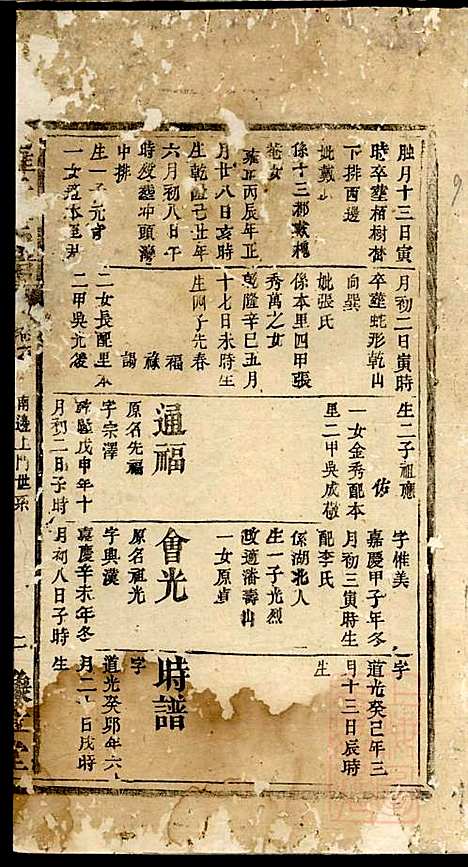 月十三日寅
時卒葬栢樹
下排西邊
妣戴氏
係十三都
丙辰年正
月廿八日亥時
生乾隆廿年
六月初八日午
時歿葬冲頭灣
中排
生一子元
一女
月初二日寅時
卒葬蛇形乾山
向巽
妣張氏
係本里四甲張
秀萬之女
乾隆辛巳五月
十七日未時生
生四子先春
福
祿
賜
二女長配里本
二甲吳光後
生二子祖應
佑
一女金秀配本
里二甲吳成
通福
原名先福
字宗澤
乾隆戊申年十
月初二日子時
字惟美
嘉慶甲子年冬
月初三寅時生
配李氏
係湖北人
生一子光烈
改適潘壽山
一女原貞
會光
原名祖光
字典漢
嘉慶辛未年冬
月初八日子時
字
道光癸巳年三
月十三日辰時
生
時譜
字
道光癸卯年六
月二日戌時
生
南邊上門世系